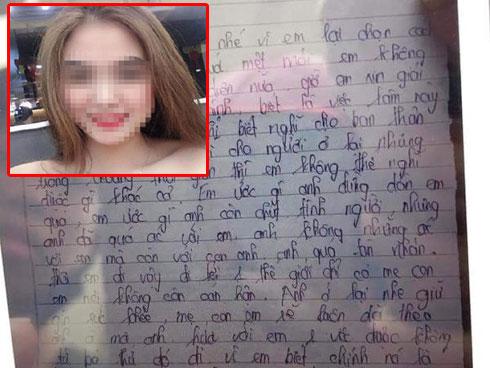 nhé vì em lại chọn cá
mệt mỏi em không
nữa, giờ an xin giải
biết là việc làm này
biết nghĩ cho bản thân
cho người ở lại nhưng
thì em không thể nghĩ
được gì khác cả. Em ước gì anh đừng dồn em
quá, em ước gì anh còn chút tình người, nhưng
anh đã quá ác với em, anh không những ác
với em mà còn với con anh, anh quá tàn nhẫn.
Thà em đi vậy để lại 1 thế giới chỉ có mẹ con
em nơi không còn oan hận. Anh ở lại nhé giữ
sức khỏe, mẹ con em sẽ luôn dõi theo
mà anh, hứa với em 1 việc được không
bỏ thứ đó đi vì em biết chính nó là